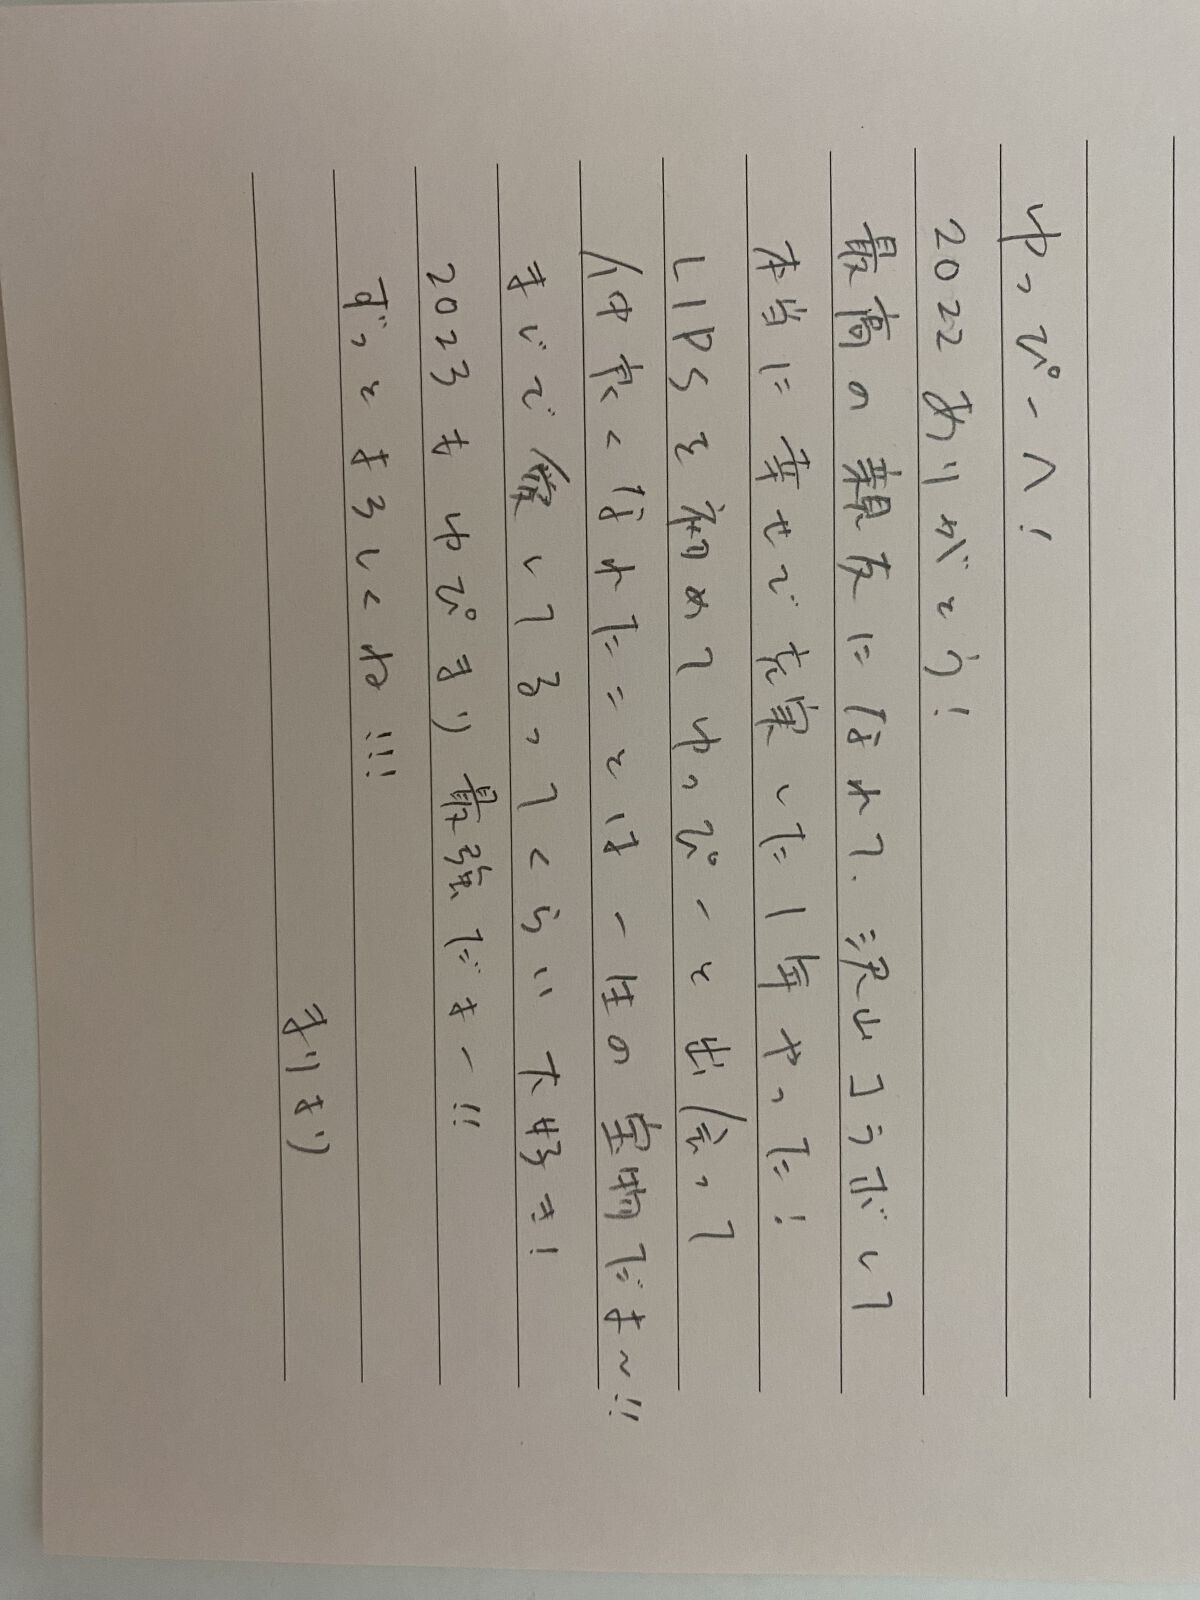 ゆっぴーへ!
2022ありがとう!
最高の親友になれて、沢山コラボして
本当に幸せで充実した1年やった!
LIPSを初めてゆっぴーと出会って
仲良くなれたことは一生の宝物だよ〜!!
まじで愛してるってくらい大好き!
2023もゆぴまり最強だよー!!
ずっとよろしくね!!!
まりより